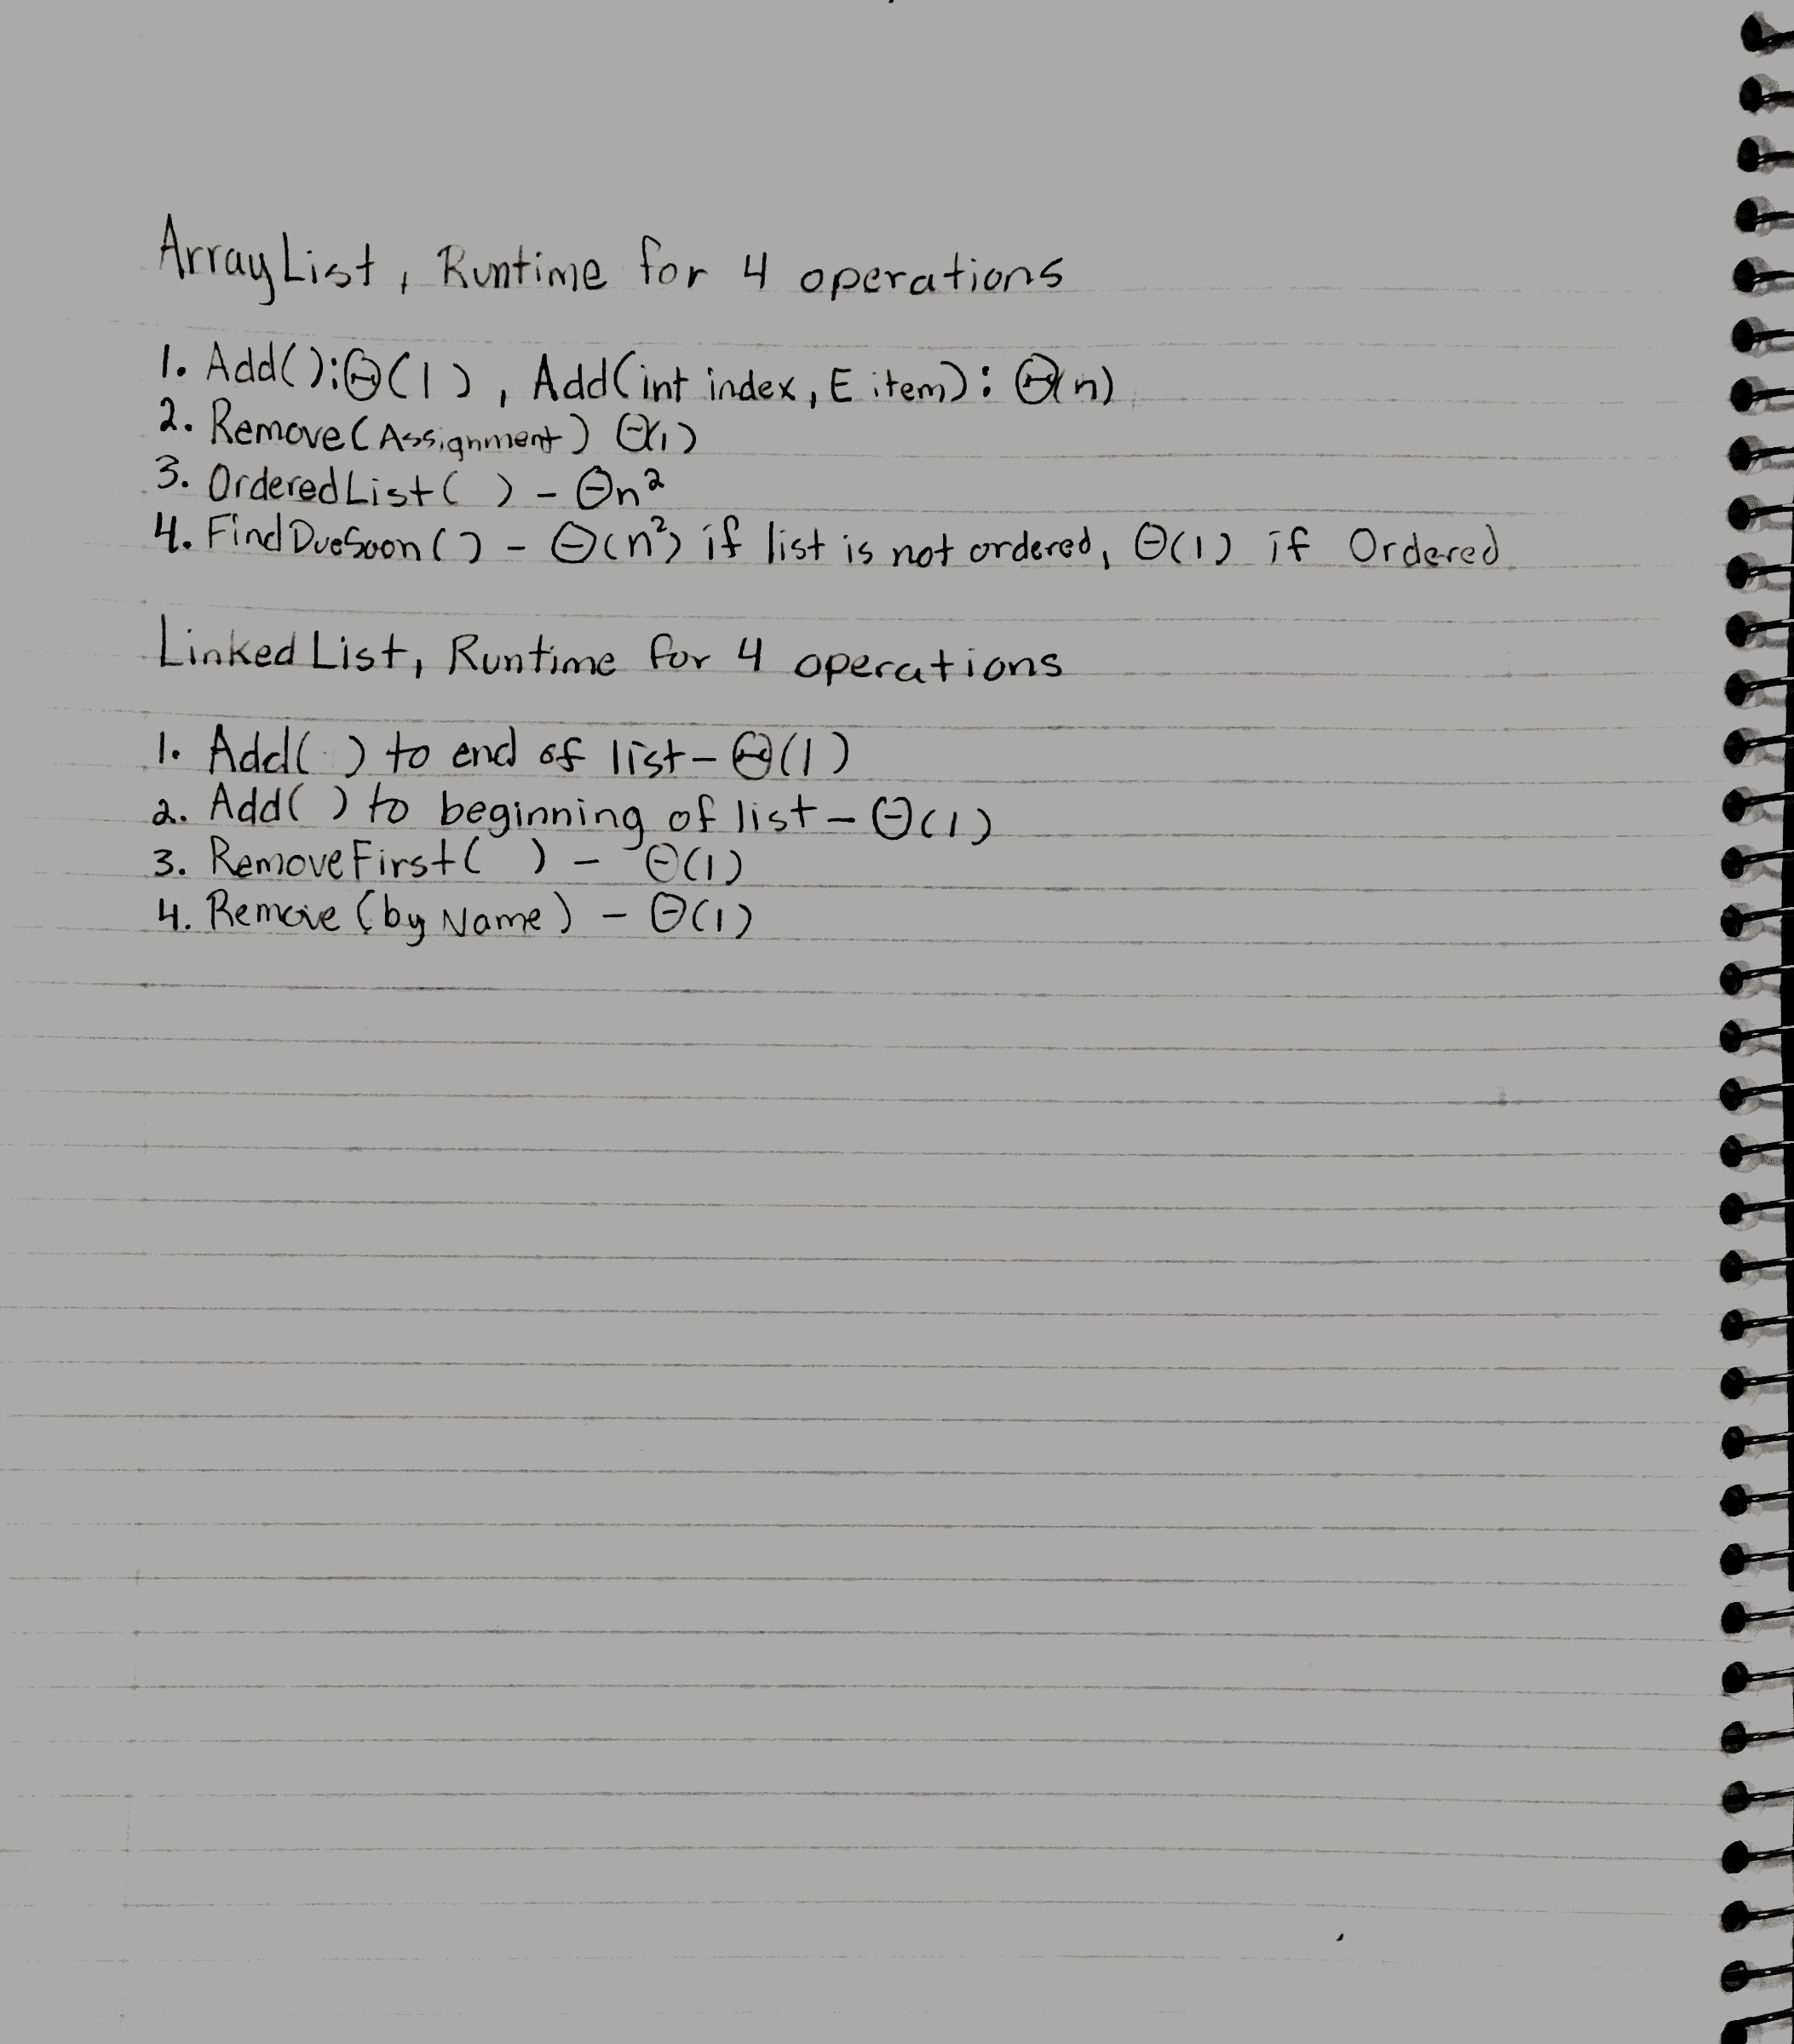 ArrayList, Runtime for 4 operations
1. Add():Θ(1), Add(int index, E item): Θ(n)
2. Remove(Assignment) Θ(1)
3. OrderedList( ) - Θn²
4. FindDueSoon() - Θ(n²) if list is not ordered, Θ(1) if Ordered
Linked List, Runtime for 4 operations
1. Add( ) to end of list - Θ(1)
2. Add( ) to beginning of list - Θ(1)
3. RemoveFirst( ) - Θ(1)
4. Remove (by Name) - Θ(1)